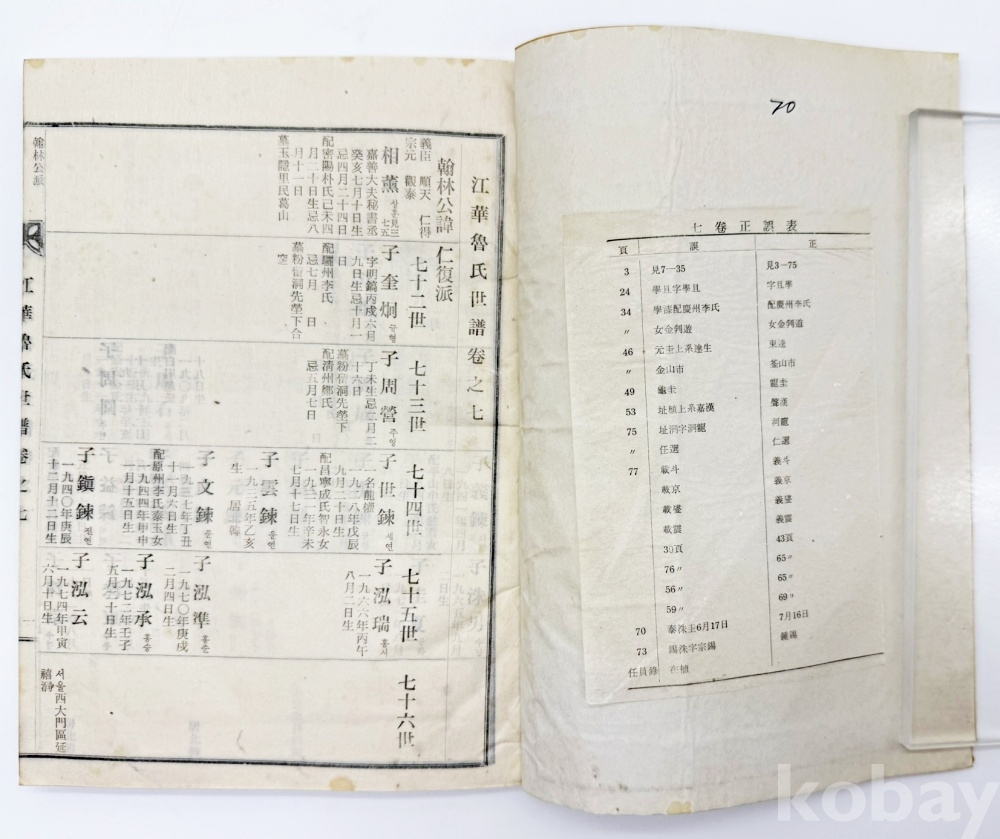 江華魯氏世譜卷之七
翰林公諱仁復派
義臣 順天 仁得
宗元 觀泰
相薰 상훈 見三 七五
嘉善大夫秘書丞
癸亥七月十日生
忌四月二十四日
配密陽朴氏己未四
月二十日生忌八
月十一日
墓玉隱里民葛山
七十二世
子奎炯 규형
字明鎬丙戌六月
九日生忌十月一
日
配驪州李氏
忌七月 日
墓粉傖洞先塋下合
窆
七十三世
子周營 주영
丁未生忌二月二
十六日
墓粉傖洞先塋下
配清州鄭氏
忌五月七日
七十四世
子世鍊 세연
一名龍權
一九二八年戊辰
九月二十日生
配昌寧成氏智永女
一九三一年辛未
七月十七日生
子雲鍊 운연
一九三五年乙亥
生
子文鍊 문연
一九三七年丁丑
十一月六日生
配原州李氏泰玉女
一九四四年甲申
一月十五日生
子鎭鍊 진연
一九四〇年庚辰
十二月十二日生
七十五世
子泓瑞 홍서
一九六六年丙午
八月二日生
子泓準 홍준
一九七〇年庚戌
二月四日生
子泓承 홍승
一九七二年壬子
五月二十日生
子泓云
一九七四年甲寅
六月十日生
七十六世
서울西大門區延
禧洞
翰林公派
江華魯氏世譜卷之七
一
70
七卷正誤表
頁 誤 正
3 見7—35 見3—75
24 學且字學且 字且學
34 學漆配慶州李氏 配慶州李氏
〃 女金判遊 女金判遊
46 元圭上系達生 東達
〃 金山市 釜山市
49 龜圭 龍圭
53 址植上系嘉漢 聲漢
75 址洞字洞龍 河龍
〃 任選 仁選
77 載斗 義斗
載京 義京
載瑩 義瑩
載震 義震
39頁 43頁
76〃 65〃
56〃 65〃
59〃 69〃
70 泰洙圭6月17日 7月16日
73 錫洙字宗錫 鍾錫
任員錄 在植
kobay